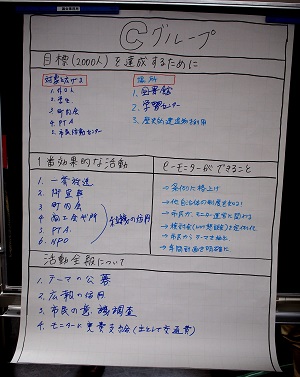 Ⓒグループ
目標(2000人)を達成するために
対象を広げる
1. NPO
2. 学生
3. 町内会
4. PTA
5. 市民活動センター
場所
1. 図書館
2. 学習センター
3. 歴史的建造物を利用
1番効果的な活動
1. 一斉放送
2. 掲示板
3. 町内会
4. 商工会議所
5. PTA
6. NPO
組織の活用
eモニターができること
→条例に格上げ
→他自治体の制度をまねる
→市民がモニター運営に関わる
→市民からテーマを抽出
→年間計画を明確に
活動全般について
1. テーマの公募
2. 広報の活用
3. 市民の意識調査
4. モニターに実費支給(主として交通費)